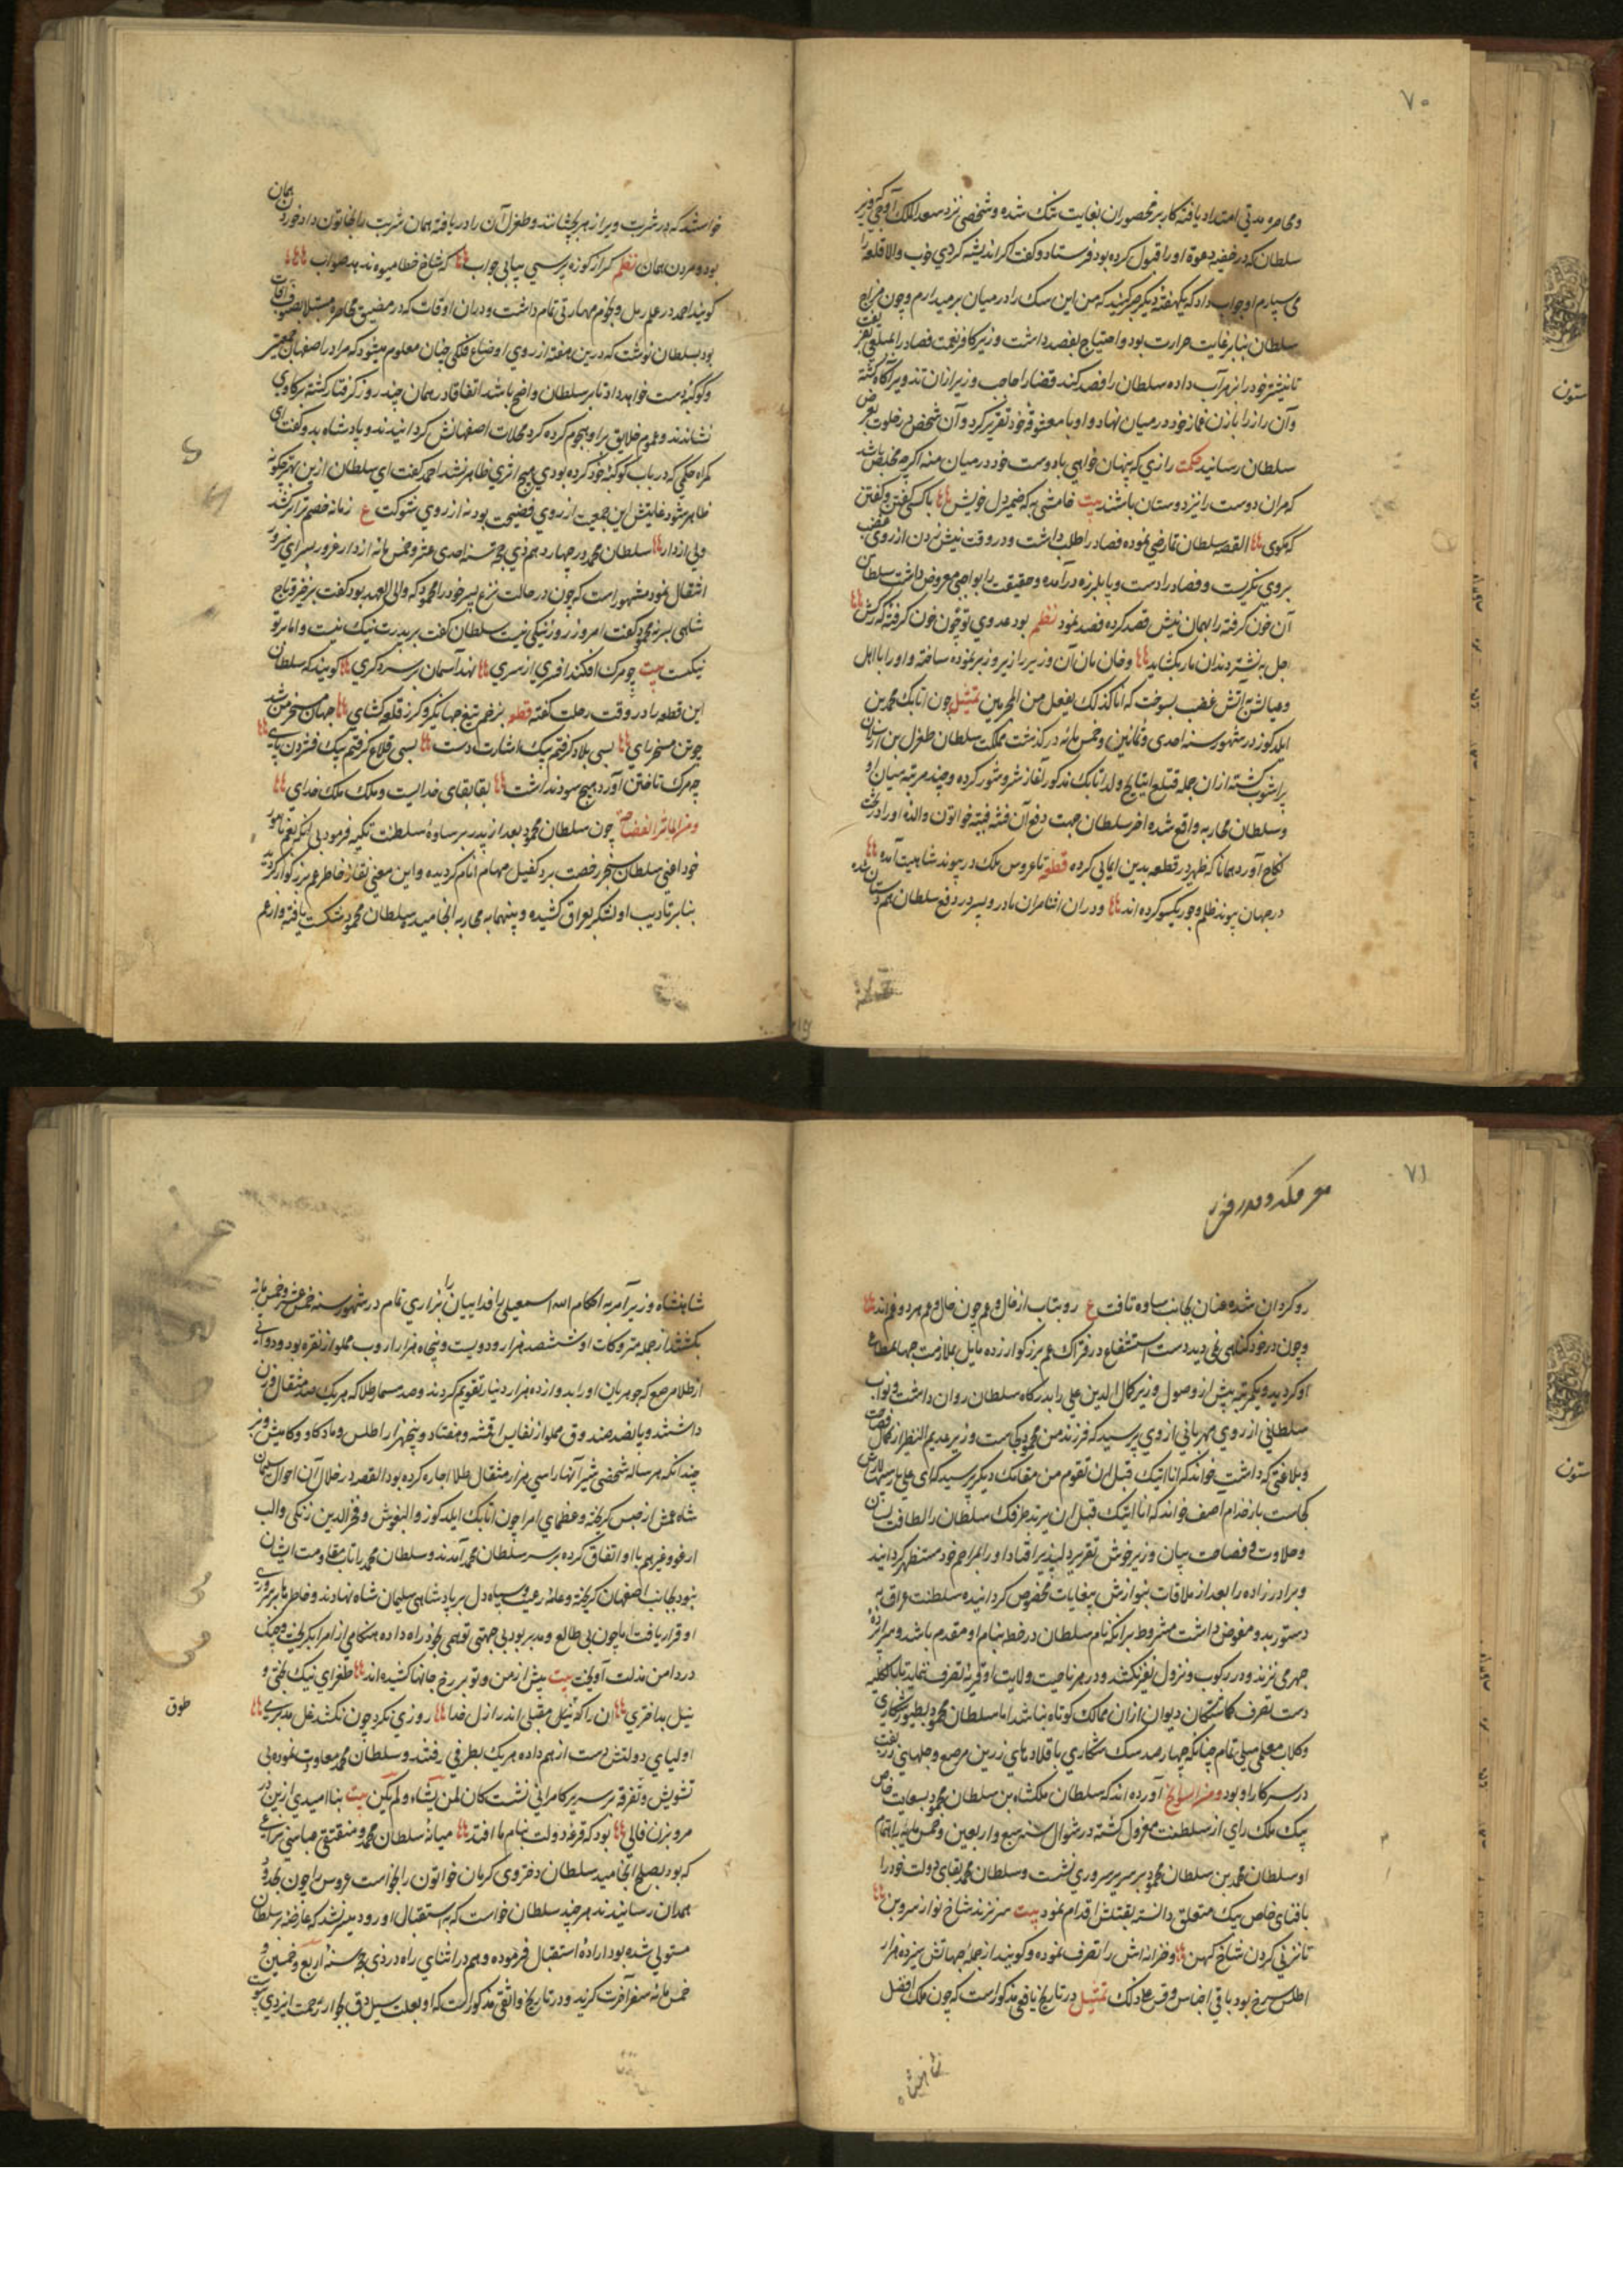 ۷۰
ومحاصره مدتی امتداد یافته کار بر محصوران بغایت تنک شده و شخصی نزد سعد الملک آوجی وزیر
سلطان که در خفیه دعوة او را قبول کرده بود فرستاد و گفت اگر اندیشه کردی خوب والا قلعه را
می سپارم او جواب داد که یکهفته دیگر صبر کنید که من این سک را در میان بر میدارم و چون مزاج
سلطان بنابر غایت حرارت بود و احتیاج بفصد داشت وزیر کافر نعمت فصاد را بمبلغی بفریفت
تا نیشتر خود را بزهر آب داده سلطان را فصد کند قضا را حاجب وزیر از ان تدویر آگاه گشته
وآن راز را با زن غماز خود در میان نهاد و او با معشوق خود تقریر کرد و آن شخص در خلوت بعرض
سلطان رسانید حکمت رازی که پنهان خواهی با دوست خود در میان منه اگرچه مخلص باشد
که مران دوست را نیز دوستان باشند بیت خامشی به که ضمیر دل خویش با کسی گفتن و گفتن
که مکوی القصه سلطان تمارضی نموده فصاد را طلب داشت و در وقت نیش زدن از روی غضب
بروی نگریست و فصاد را دست و پا بلرزه در آمده و حقیقت را بواجبی معروض داشت سلطان
آن خون گرفته را بهمان نیش قصد کرده فصد نمود نظم بود عدوی تو چون خون گرفته که رگش
اجل به نیشتر دندان مار بگشاید و خان مان آن وزیر را زیر و زبر نموده ساخته و او را با اهل
و عیالش بآتش غضب بسوخت که انا کذلک نفعل من المجرمین تمثیل چون اتابک محمد بن
ایلدکوز در شهور سنه احدی و ثمانین و خمس مائه در گذشت مملکت سلطان طغرل بن ارسلان
پر اشوب گشته از ان جمله قتلغ اینانج ولد اتابک مذکور آغاز شر و شور کرده و چند مرتبه میان او
و سلطان محاربه واقع شده اخر سلطان جهت دفع آن فتنه قتیبه خواتون والده او را در تحت
نکاح آورد همانا که ظهیر در قطعه بدین ایمایی کرده قطعه تا عروس ملک در پیوند شاهیت آمده
در جهان پیوند ظلم و جور یکسو کرده اند و دران اثنا مران مادر و پسر در دفع سلطان هم داستان شده
خواستند که در شربت ویرا زهر بچشانند و طغرل آن را دریافته همان شربت را بخاتون داد خوردن همان
بود و مردن همان نظم گر از کوزه پرسی بیابی جواب که شاخ خطا میوه ندهد صواب
گویند احمد در علم رمل و نجوم مهارتی تمام داشت و دران اوقات که در مضیق محاصره مبتلا
بود بسلطان نوشت که درین هفته از روی اوضاع فلکی چنان معلوم میشود که مرا در اصفهان جمعیتی
و کوکبه دست خواهد داد تا بر سلطان واضح باشد اتفاقا در همان چند روز گرفتار گشته بر گاوی
نشاندند و عموم خلایق بر او هجوم کرده گرد محلات اصفهانش گردانیدند و پادشاه بدو گفت ای
گمراه حکمی که در باب کوکبه خود کرده بودی هیچ اثری ظاهر نشد احمد گفت ای سلطان ازین بهتر چگونه
ظاهر شود غایتش این جمعیت از روی فضیحت بود نه از روی شوکت ع زمانه خصم ترا بر کشد
ولی از دار سلطان محمد در چهاردهم ذی حجه سنه احدی عشر و خمس مائه از دار غرور بسرای سرور
انتقال نمود مشهور است که چون در حالت نزع پسر خود را محمود که والی العهد بود گفت برخیز و تاج
شاهی بر نه محمود گفت امروز روز نیکی نیست سلطان گفت بر پدرت نیک نیست و اما بر تو
نیکست بیت چو مرگ افگند افسری از سری نهد آسمان بر سر دگری گویند که سلطان
این قطعه را در وقت رحلت گفته قطعه بزخم تیغ جهانگیر و گرز قلعه گشای جهان مسخر من شد
چو تن مسخر رای بسی بلاد گرفتم بیک اشارت دست بسی قلاع گرفتم بیک فشردن پای
چو مرگ تاختن آورد هیچ سود نداشت بقا بقای خدایست و ملک ملک خدای
چون سلطان محمود بعد از پدر بر ساوه سلطنت تکیه فرمود بی آنکه بعم نامور
خود اعنی سلطان سنجر رخصت برد کفیل مهام انام گردیده و این معنی نقار خاطر عم بزرگوار گردید
بنابر تادیب او لشکر بعراق کشیده و بینهما به محاربه انجامیده سلطان محمود شکست یافته و از عم
۷۱
رو گردان شده عنان بجانب ساوه تافت ع رو متاب از خال و عم چون خال و عم هر دو غم اند
و چون در خود گناهی نمی دید دست استشفاع در فتراک عم بزرگوار زده مایل بملازمت جهان مطاع
او گردید و یکمرتبه پیش از وصول وزیر کمال الدین علی را بدرگاه سلطان روان داشت و نواب
سلطانی از روی مهربانی از وی پرسید که فرزند من محمود کجاست وزیر عدیم النظیر از کمال فصاحت
و بلاغتی که داشت خواند که انا اتیک قبل ان تقوم من مقامک دیگر پرسید که ای علی بارسلان
کجاست باز خدام آصف خواند که انا اتیک قبل ان یرتد طرفک سلطان را لطافت لسان
و حلاوت و فصاحت بیان وزیر خوش تقریر دلپذیر افتاد او را بمراحم خود مستظهر گردانید
و برادر زاده را بعد از ملاقات بنوازش بیغایات مخصوص گردانیده سلطنت عراق به
دستور بدو مفوض داشت مشروط بر آنکه نام سلطان در خطبه بنام او مقدم باشد و سراپرده
جهرمی نزند و در رکوب و نزول نفیر نکشد و در هر ناحیت ولایت او قریهٔ تصرف نماید تا بالکلیه
دست تصرف گماشتگان دیوان ازان ممالک کوتاه نباشد اما سلطان محمود بطیور شکاری
و کلاب معلمی میلی تمام چنانکه چهار صد سگ شکاری با قلادهای زرین مرصع و جلهای زربفت
در سرکار او بود ومن السوانح آورده اند که سلطان ملکشاه بن سلطان محمود بسعایت خاص
بیک ملک رای از سلطنت معزول گشته در شوال سنه سبع و اربعین و خمس مایه
او سلطان محمد بن سلطان محمود بر سریر سروری نشست و سلطان محمد بقای دولت خود را
بافنای خاص بیک متعلق دانسته بقتلش اقدام نمود بیت سر نزند شاخ نو از سرو بن
تا نزنی گردن شاخ کهن و خزانه اش را تصرف نموده و گویند از جمله جهاتش سیزده هزار
اطلس سرخ بود باقی اجناس و قس علی ذلک تمثیل در تاریخ یافعی مذکور است که چون ملک افضل
شاهنشاه وزیر آمر به احکام الله اسمعیلی را فداییان بزاری تمام در شهور سنه خمس عشر و خمس مائه
بکشتند از جمله متروکات او ششصد هزار و دویست و پنجاه هزار اردب مملو از نقره بود و دواتی
از طلا مرصع که جوهریان او را بدوازده هزار دینار تقویم کردند و صد مسمار طلا که هر یک صد مثقال وزن
داشتند و پانصد صندوق مملو از نفایس اقمشه و هفتاد و پنجهزار اطلس و ماده گاو و گامیش و بز
چندانکه هر ساله شخصی شیر آنها را سی هزار مثقال طلا اجاره کرده بود القصه در خلال آن احوال سلیمان
شاه عمش از حبس گریخته و عظمای امرا چون اتابک ایلدکوز و البغوش و فخر الدین زنکی و الب
ارغو و غیرهم با او اتفاق کرده بر سر سلطان محمد آمدند و سلطان محمد را تاب مقاومت ایشان
نبود بجانب اصفهان گریخته و عامه رعیت و سپاه دل بر پادشاهی سلیمان شاه نهادند و خاطر ها بر سروری
او قرار یافت اما چون بی طالع و مدبر بود بی جهتی توهمی بخود راه داده هنگامی از امرا بگریخت و چنگ
در دامن مذلت آویخت بیت پیش از من و تو بر رخ جانها کشیده اند طغرای نیک بختی و
نیل بداختری ان را که نیل مقبلی اندر ازل خدا روزی نکرد چون نکشد غل مدبری
طوق
اولیای دولتش دست از هم داده هر یک بطرفی رفتند و سلطان محمد معاودت نموده بی
تشویش و تفرقه بر سریر کامرانی نشست کان لمن یشاء ولم یکن بیت بنا امیدی ازین در
مرو بزن فالی بود که قرعه دولت بنام ما افتد میانهٔ سلطان محمد و مقتفی عباسی نزاعی
که بود بصلح انجامید سلطان دختر وی کرمان خواتون را بخواست عروس را چون بحدود
همدان رسانیدند هر چند سلطان خواست که به استقبال او رود میسر نشد که عارضه بر سلطان
مستولی شده بود ارادهٔ استقبال فرموده و هم در اثنای راه در ذی حجه سنهٔ اربع و خمسین و
خمس مائه سفر آخرت گزید و در تاریخ واثقی مذکور است که او بعلت سیل و دق بجوار رحمت ایزدی
ستون
ستون